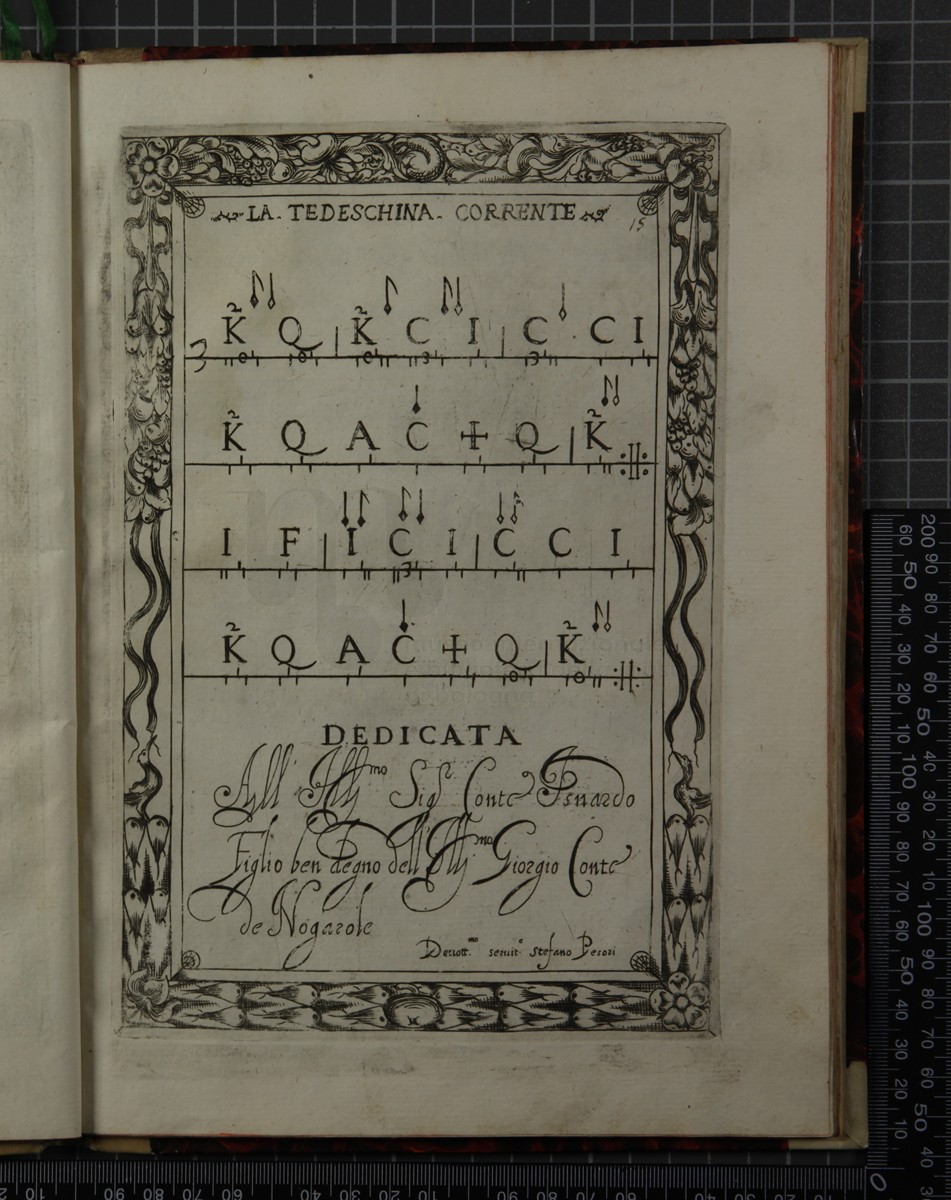 LA. TEDESCHINA. CORRENTE
15
3 K̃ Q | K̃ C I | C C I
K̃ Q A C + Q | K̃
I F | I C I | C C I
K̃ Q A C + Q | K̃
DEDICATA
All' Ill^mo Sig^r Conte Isnardo
Figlio ben Degno dell' Ill^mo Giorgio Conte
de Nogarole
stefano Pesori